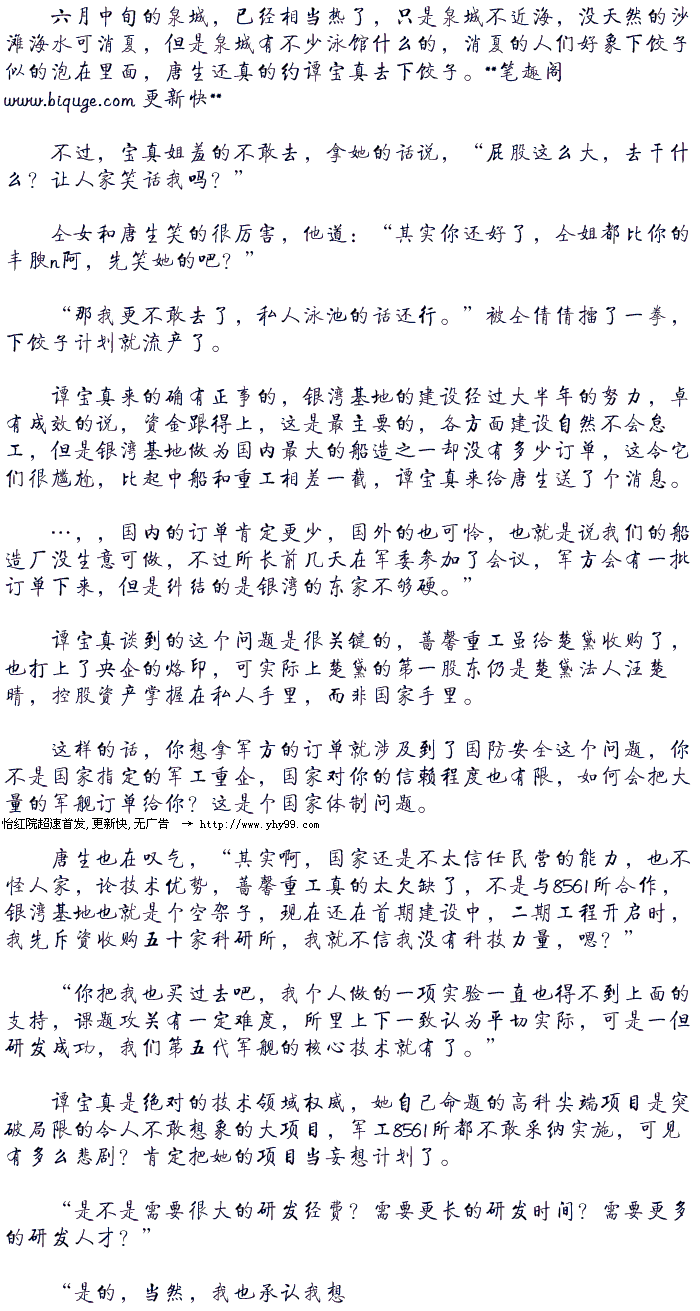 六月中旬的泉城，已经相当热了，只是泉城不近海，没天然的沙
滩海水可消夏，但是泉城有不少泳馆什么的，消夏的人们好象下饺子
似的泡在里面，唐生还真的约谭宝真去下饺子。**笔趣阁
www.biquge.com 更新快**
不过，宝真姐羞的不敢去，拿她的话说，“屁股这么大，去干什
么？让人家笑话我吗？”
仝女和唐生笑的很厉害，他道：“其实你还好了，仝姐都比你的
丰腴n阿，先笑她的吧？”
“那我更不敢去了，私人泳池的话还行。”被仝倩倩擂了一拳，
下饺子计划就流产了。
谭宝真来的确有正事的，银湾基地的建设经过大半年的努力，卓
有成效的说，资金跟得上，这是最主要的，各方面建设自然不会怠
工，但是银湾基地做为国内最大的船造之一却没有多少订单，这令它
们很尴尬，比起中船和重工相差一截，谭宝真来给唐生送了个消息。
…，，国内的订单肯定更少，国外的也可怜，也就是说我们的船
造厂没生意可做，不过所长前几天在军委参加了会议，军方会有一批
订单下来，但是纠结的是银湾的东家不够硬。”
谭宝真谈到的这个问题是很关键的，蔷馨重工虽给楚黛收购了，
也打上了央企的烙印，可实际上楚黛的第一股东仍是楚黛法人汪楚
晴，控股资产掌握在私人手里，而非国家手里。
这样的话，你想拿军方的订单就涉及到了国防安全这个问题，你
不是国家指定的军工重企，国家对你的信赖程度也有限，如何会把大
量的军舰订单给你？这是个国家体制问题。
怡红院超速首发，更新快，无广告 → http://www.yhy99.com
唐生也在叹气，“其实啊，国家还是不太信任民营的能力，也不
怪人家，论技术优势，蔷馨重工真的太欠缺了，不是与8561所合作，
银湾基地也就是个空架子，现在还在首期建设中，二期工程开启时，
我先斥资收购五十家科研所，我就不信我没有科技力量，嗯？”
“你把我也买过去吧，我个人做的一项实验一直也得不到上面的
支持，课题攻关有一定难度，所里上下一致认为平切实际，可是一但
研发成功，我们第五代军舰的核心技术就有了。”
谭宝真是绝对的技术领域权威，她自己命题的高科尖端项目是突
破局限的令人不敢想象的大项目，军工8561所都不敢采纳实施，可见
有多么悲剧？肯定把她的项目当妄想计划了。
“是不是需要很大的研发经费？需要更长的研发时间？需要更多
的研发人才？”
“是的，当然，我也承认我想